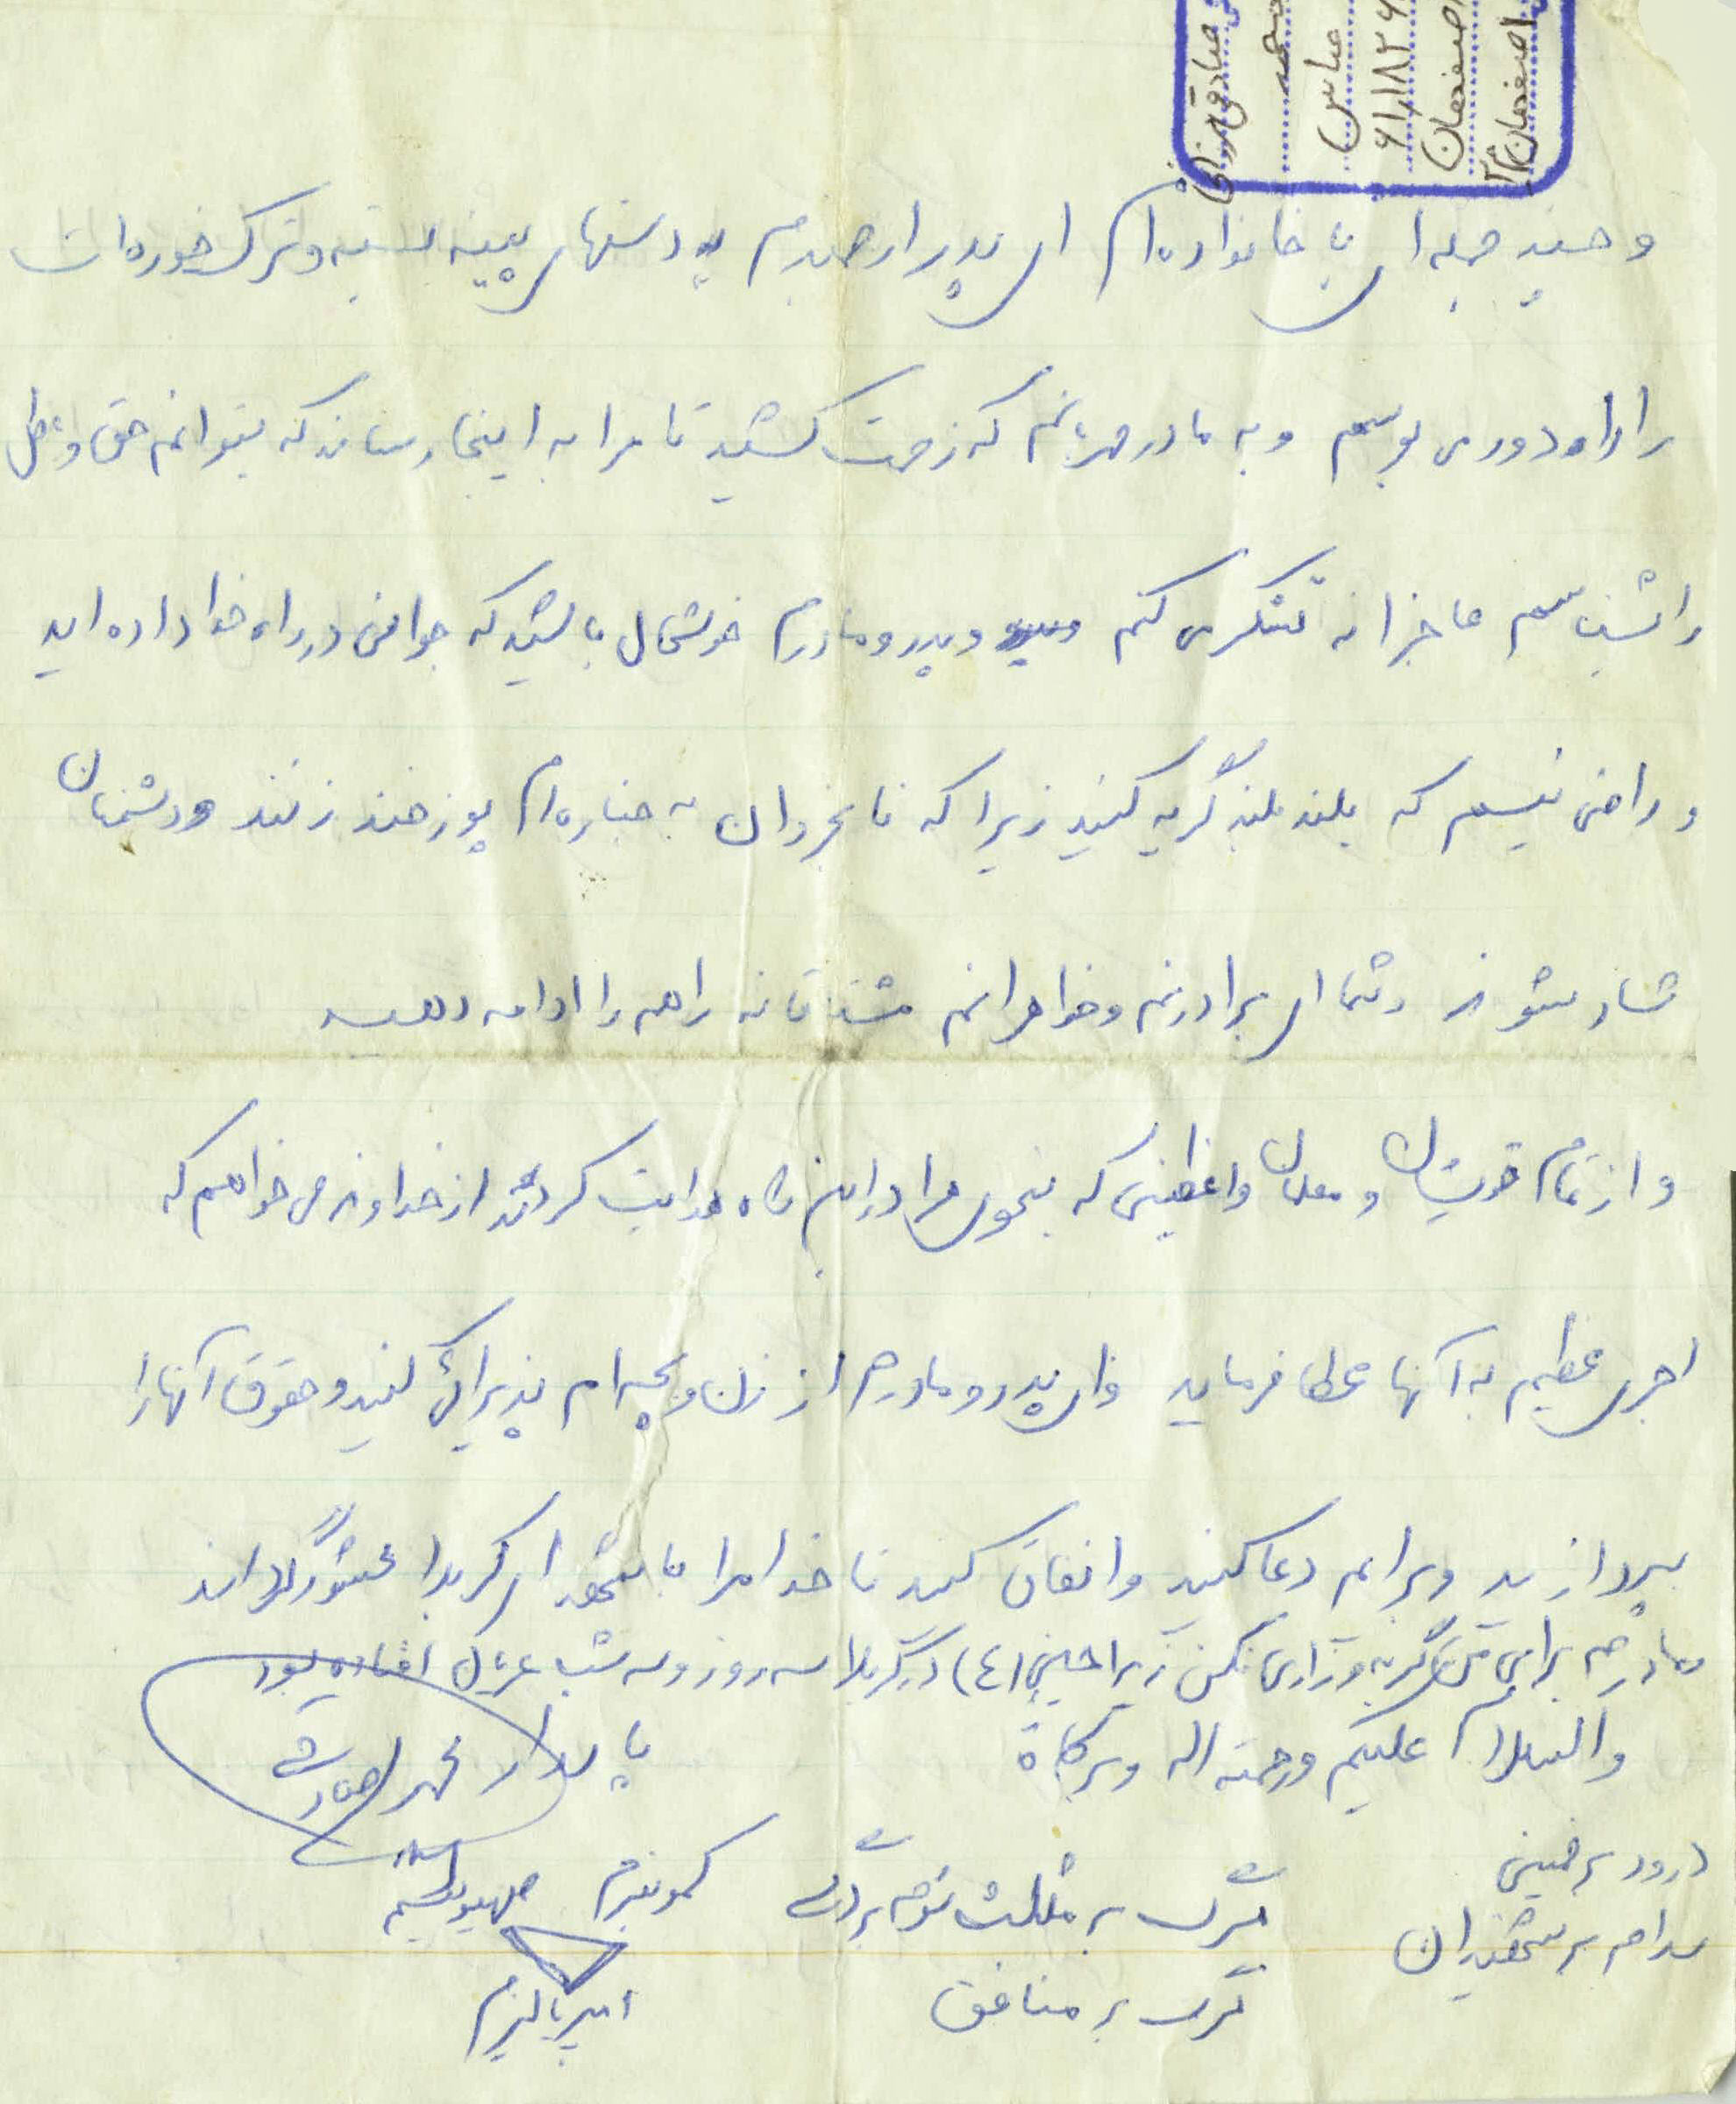 صادقی
عباس
۶۱/۱۸۲۶
اصفهان
اصفهان
و چند جمله ای با خانواده ام ای پدر ارجمندم دستهای پینه بسته و ترک خورده ات
را از راه دور می بوسم و به مادر مهربانم که زحمت کشید تا مرا به اینجا رساند که بتوانم حق و باطل
را بشناسم عاجزانه تشکر می کنم و پدر و مادرم خوشحال باشید که جوانی در راه خدا داده اید
و راضی نیستم که بلند بلند گریه کنید زیرا که نابخردان به جنازه ام پوزخند زنند و دشمنان
شاد شوند و شما ای برادرنم و خواهرانم مشتاقانه راهم را ادامه دهید
و از تمام خویشان و معلمان واعظینی که بنحوی مرا در این راه هدایت کردند از خداوند می خواهم که
اجری عظیم به آنها عطا فرماید و ای پدر و مادرم از زن و بچه ام پذیرائی کنید و حقوق آنها را
بپردازید و برایم دعا کنید و انفاق کنید تا خدا مرا با شهدای کربلا محشور گرداند
مادرم برای من گریه و زاری نکن زیرا حسین (ع) در کربلا سه روز و سه شب عریان افتاده بود
والسلام علیکم و رحمته اله و برکاة
پاسدار صادقی
درود بر خمینی
سلام بر شهیدان
مرگ بر مثلث شوم بردگی
کمونیزم صهیونیسم
امپریالیزم
مرگ بر منافق